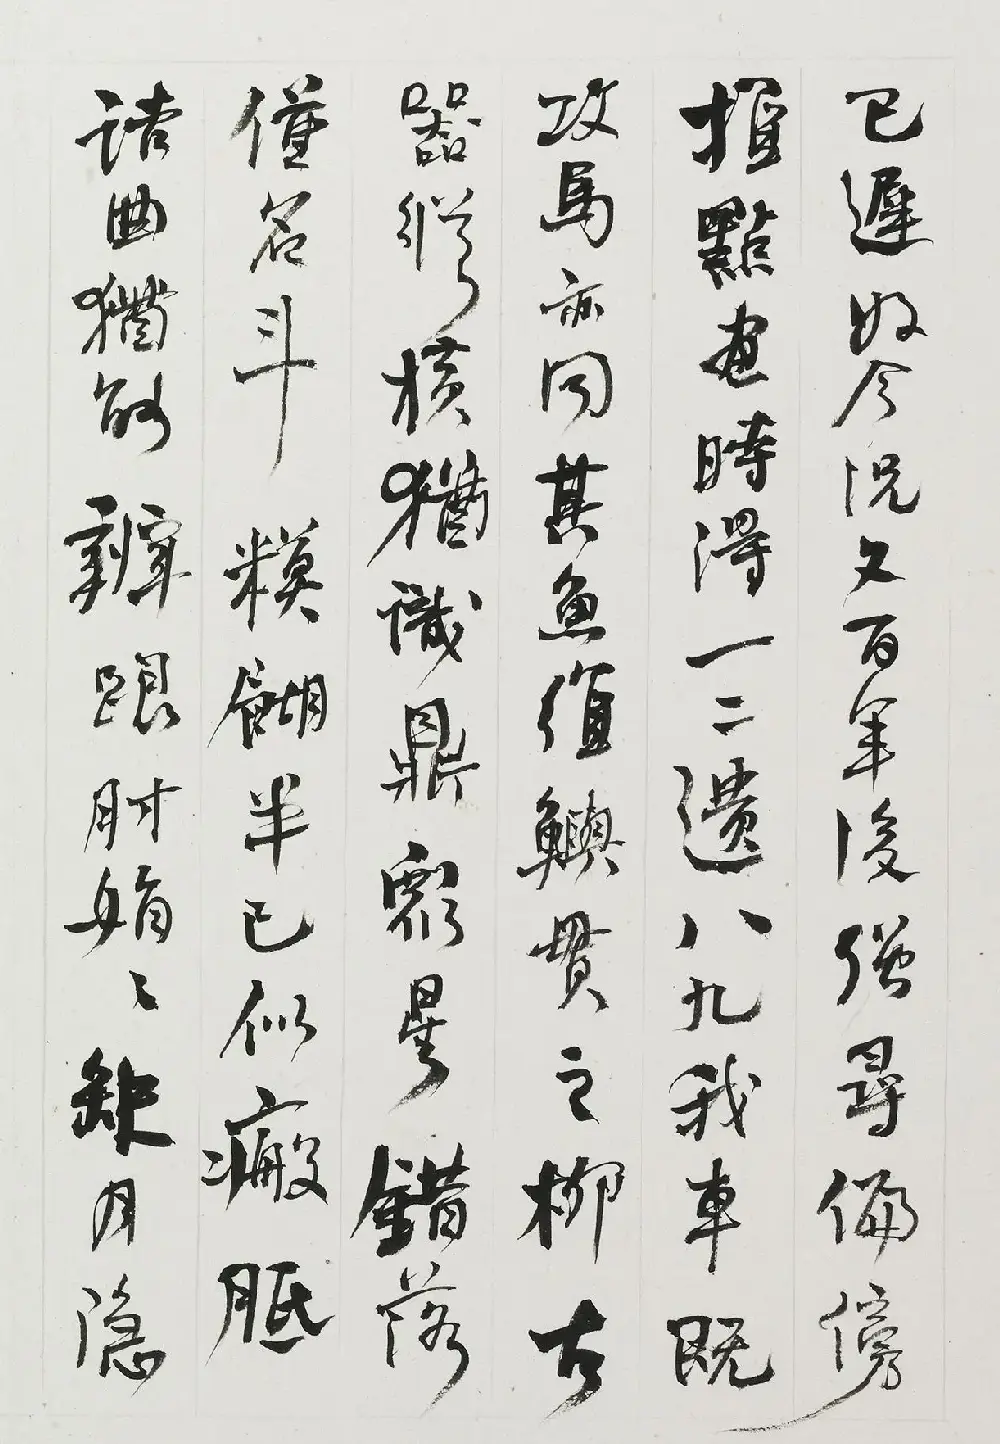 已遲今況又百年後強尋偏傍
推點畫時得一二遺八九我車既
攻馬亦同其魚維鱮貫之柳古
器縱橫猶識鼎衆星錯落
僅名斗糢餬半已似瘢胝
詰曲猶能辨跟肘娟〻缺月隱